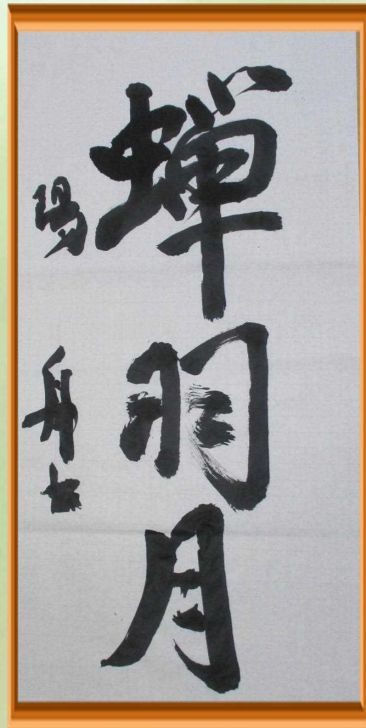 蝉羽月
陽舟